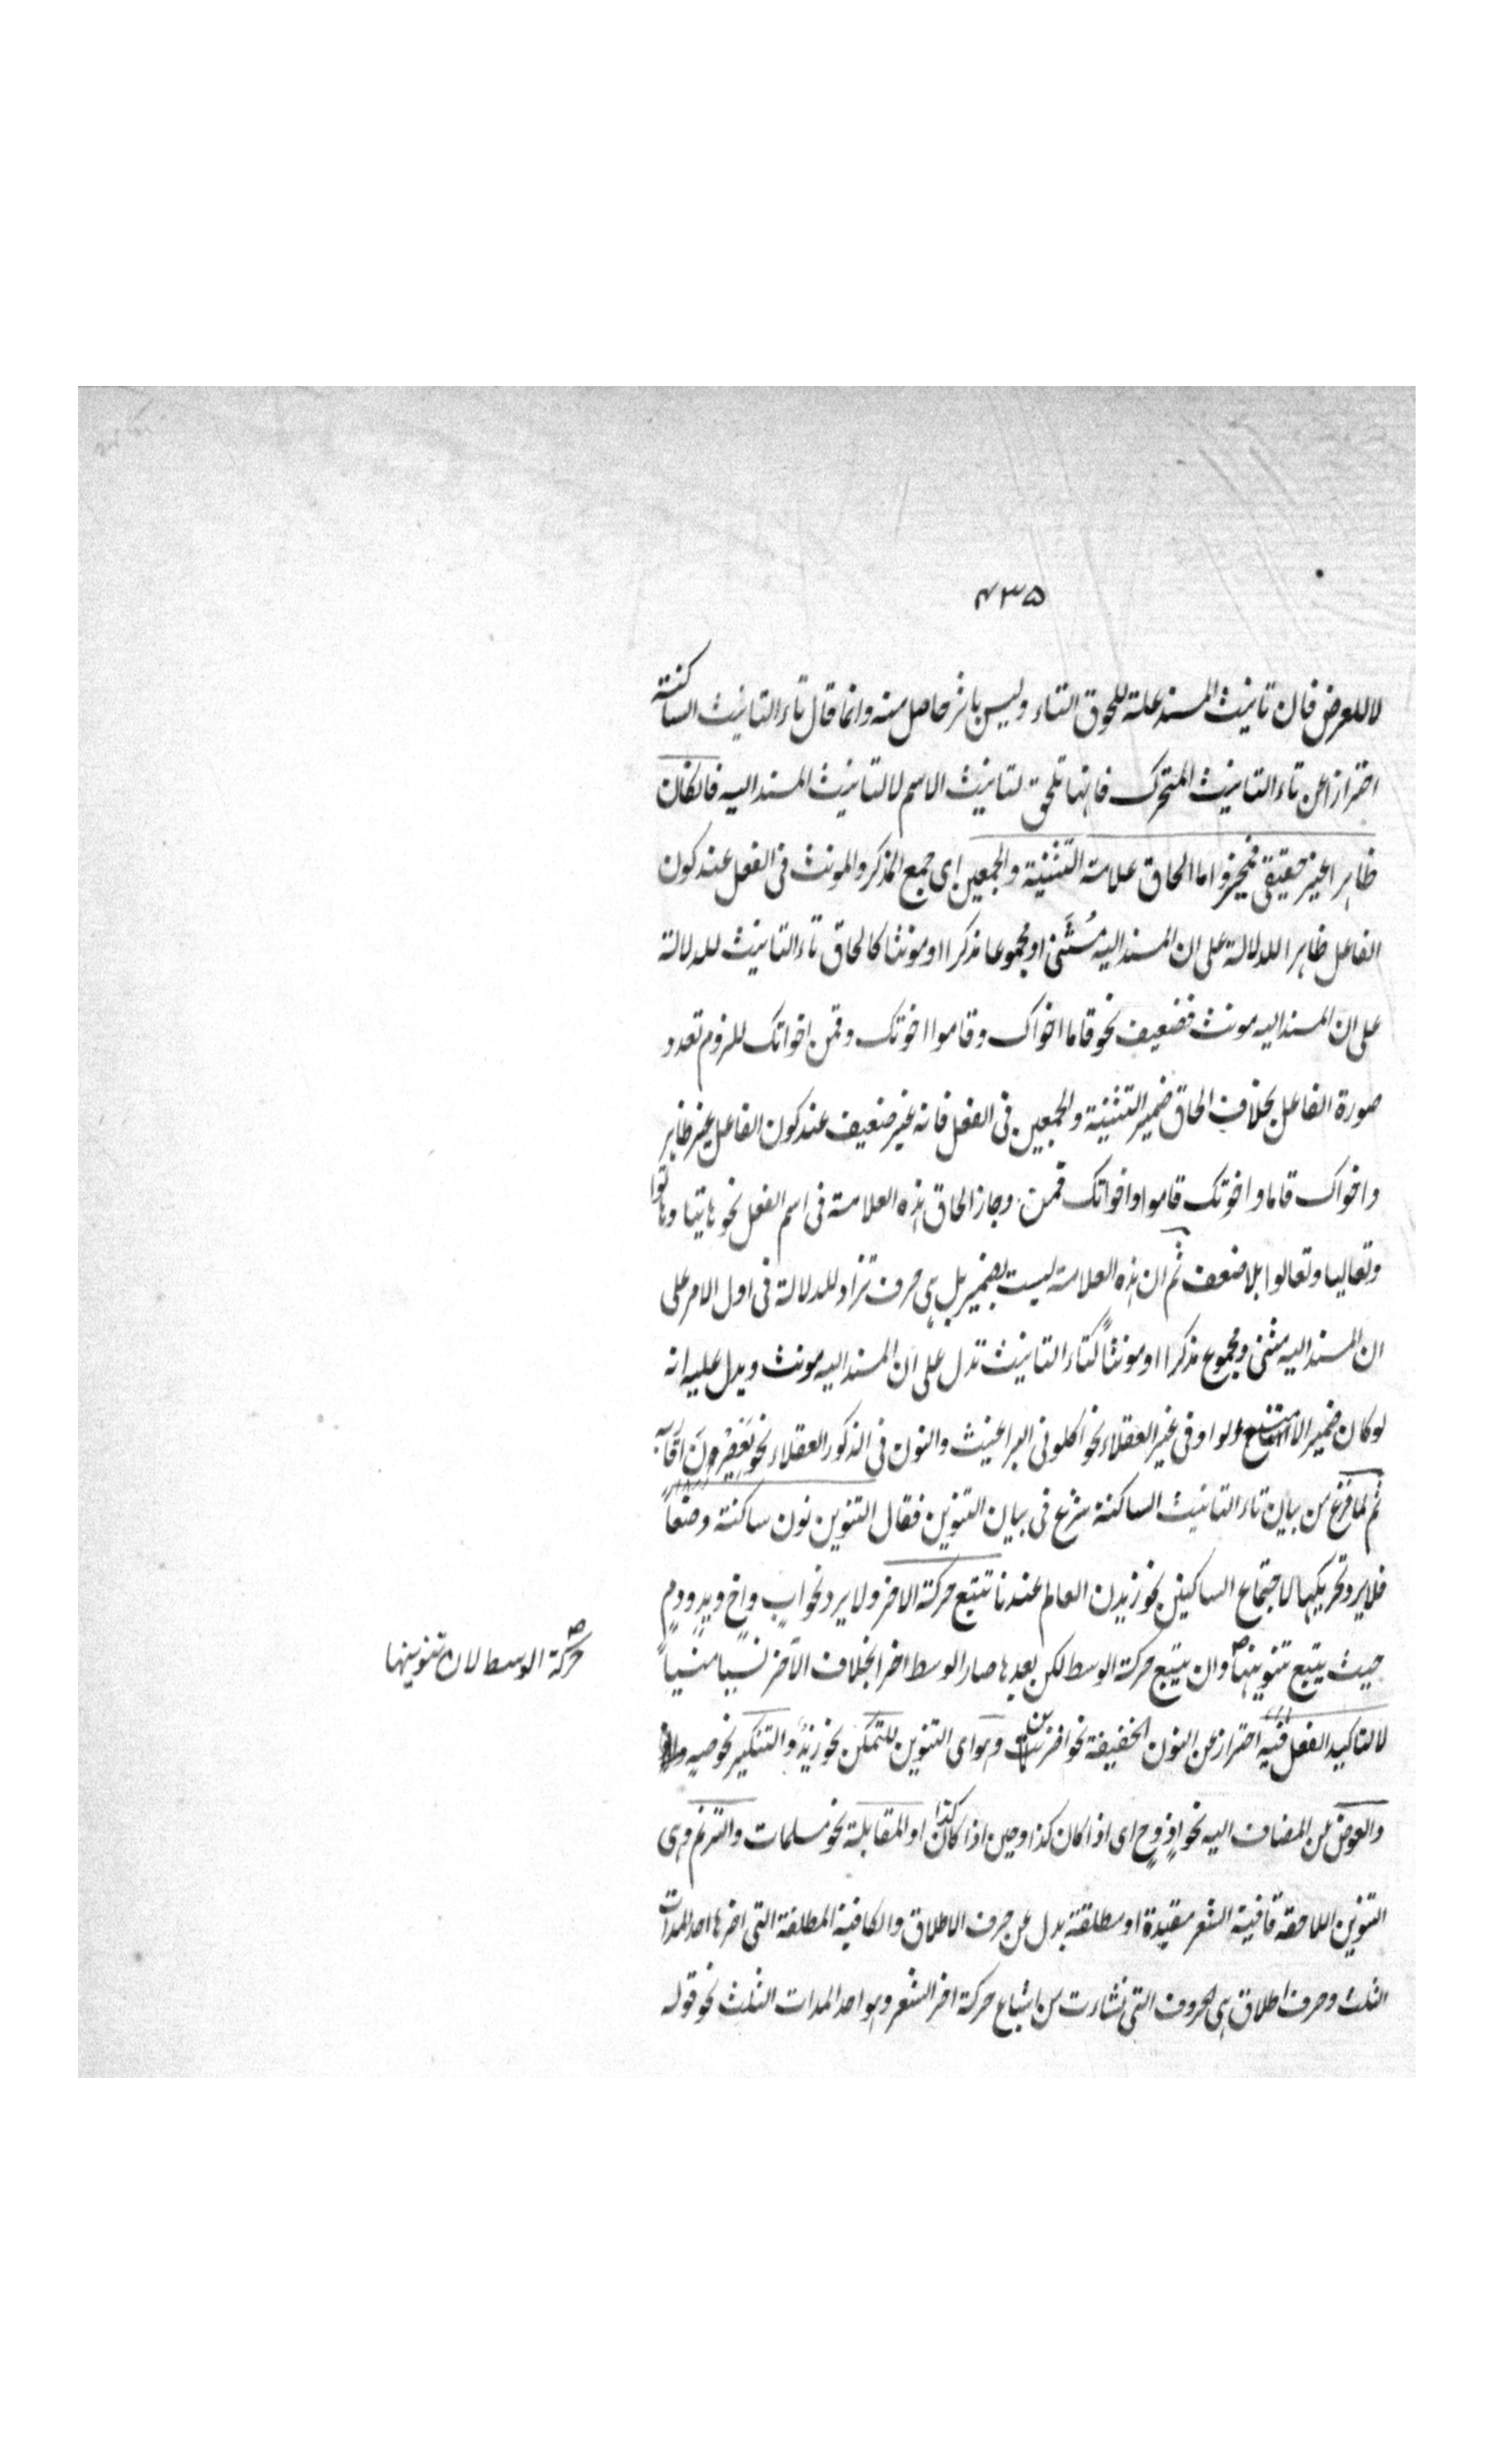 ۴۳۵
لا للعرض فان تانيث المسند علة للحوق التاء وليس باثر حاصل منه وانما قال تاء التانيث الساكنة
احترازا عن تاء التانيث المتحركة فانها تلحق لتانيث الاسم لا لتانيث المسند اليه فانكان
ظاهرا غير حقيقى فمخير واما الحاق علامة التثنية والجمعين اى جمع المذكر والمونث فى الفعل عند كون
الفاعل ظاهرا للدلالة على ان المسند اليه مُثَنى او مجموعا مذكرا او مونثا كالحاق تاء التانيث للدلالة
على ان المسند اليه مونث فضعيف نحو قاما اخواك وقاموا اخوتك وقمن اخواتك للزوم تعدد
صورة الفاعل بخلاف الحاق ضمير التثنية والجمعين فى الفعل فانه غير ضعيف عند كون الفاعل غير ظاهر
واخواك قاما واخوتك قاموا واخواتك قمن وجاز الحاق هذه العلامة فى اسم الفعل نحو هاتيا وهاتوا
وتعاليا وتعالوا بلا ضعف ثم ان هذه العلامة ليست بضمير بل هى حرف تزاد للدلالة فى اول الامر على
ان المسند اليه مثنى ومجموع مذكرا او مونثاً كتاء التانيث تدل على ان المسند اليه مونث ويدل عليه انه
لو كان ضمير الامتنع الواو فى غير العقلاء نحو اكلونى البراغيث والنون فى الذكور العقلاء نحو يَعْصِرْنَ اَقَارِبُه
ثم لما فرغ من بيان تاء التانيث الساكنة شرع فى بيان التنوين فقال التنوين نون ساكنة وضعاً
فلا يرد تحريكها لاجتماع الساكنين نحو زيدن العالم عندنا تتبع حركة الاخر ولا يرد نحو ابٍ واخٍ ويدٍ ودمٍ
حيث يتبع تنوينها وان يتبع حركة الوسط لكن بعدها صار الوسط اخرا بخلاف الآخر نسيا منسياً
حركة الوسط لان تنوينها
لا لتاكيد الفعل فيه احتراز عن النون الخفيفة نحو اضربن وهو اى التنوين للتمكن نحو زيدٌ والتنكير نحو صهٍ
والعوض عن المضاف اليه نحو اذٍ وح اى اذا كان كذا وحين اذا كان كذا او المقابلة نحو مسلمات والترنم وهى
التنوين اللاحقة قافية الشعر مقيدة او مطلقة بدل عن حرف الاطلاق والكافية المطلقة التى اخرها احد المدات
الثلث وحرف اطلاق هى الحروف التى نشاءت من اشباع حركة اخر الشعر وهو احد المدات الثلث نحو قوله